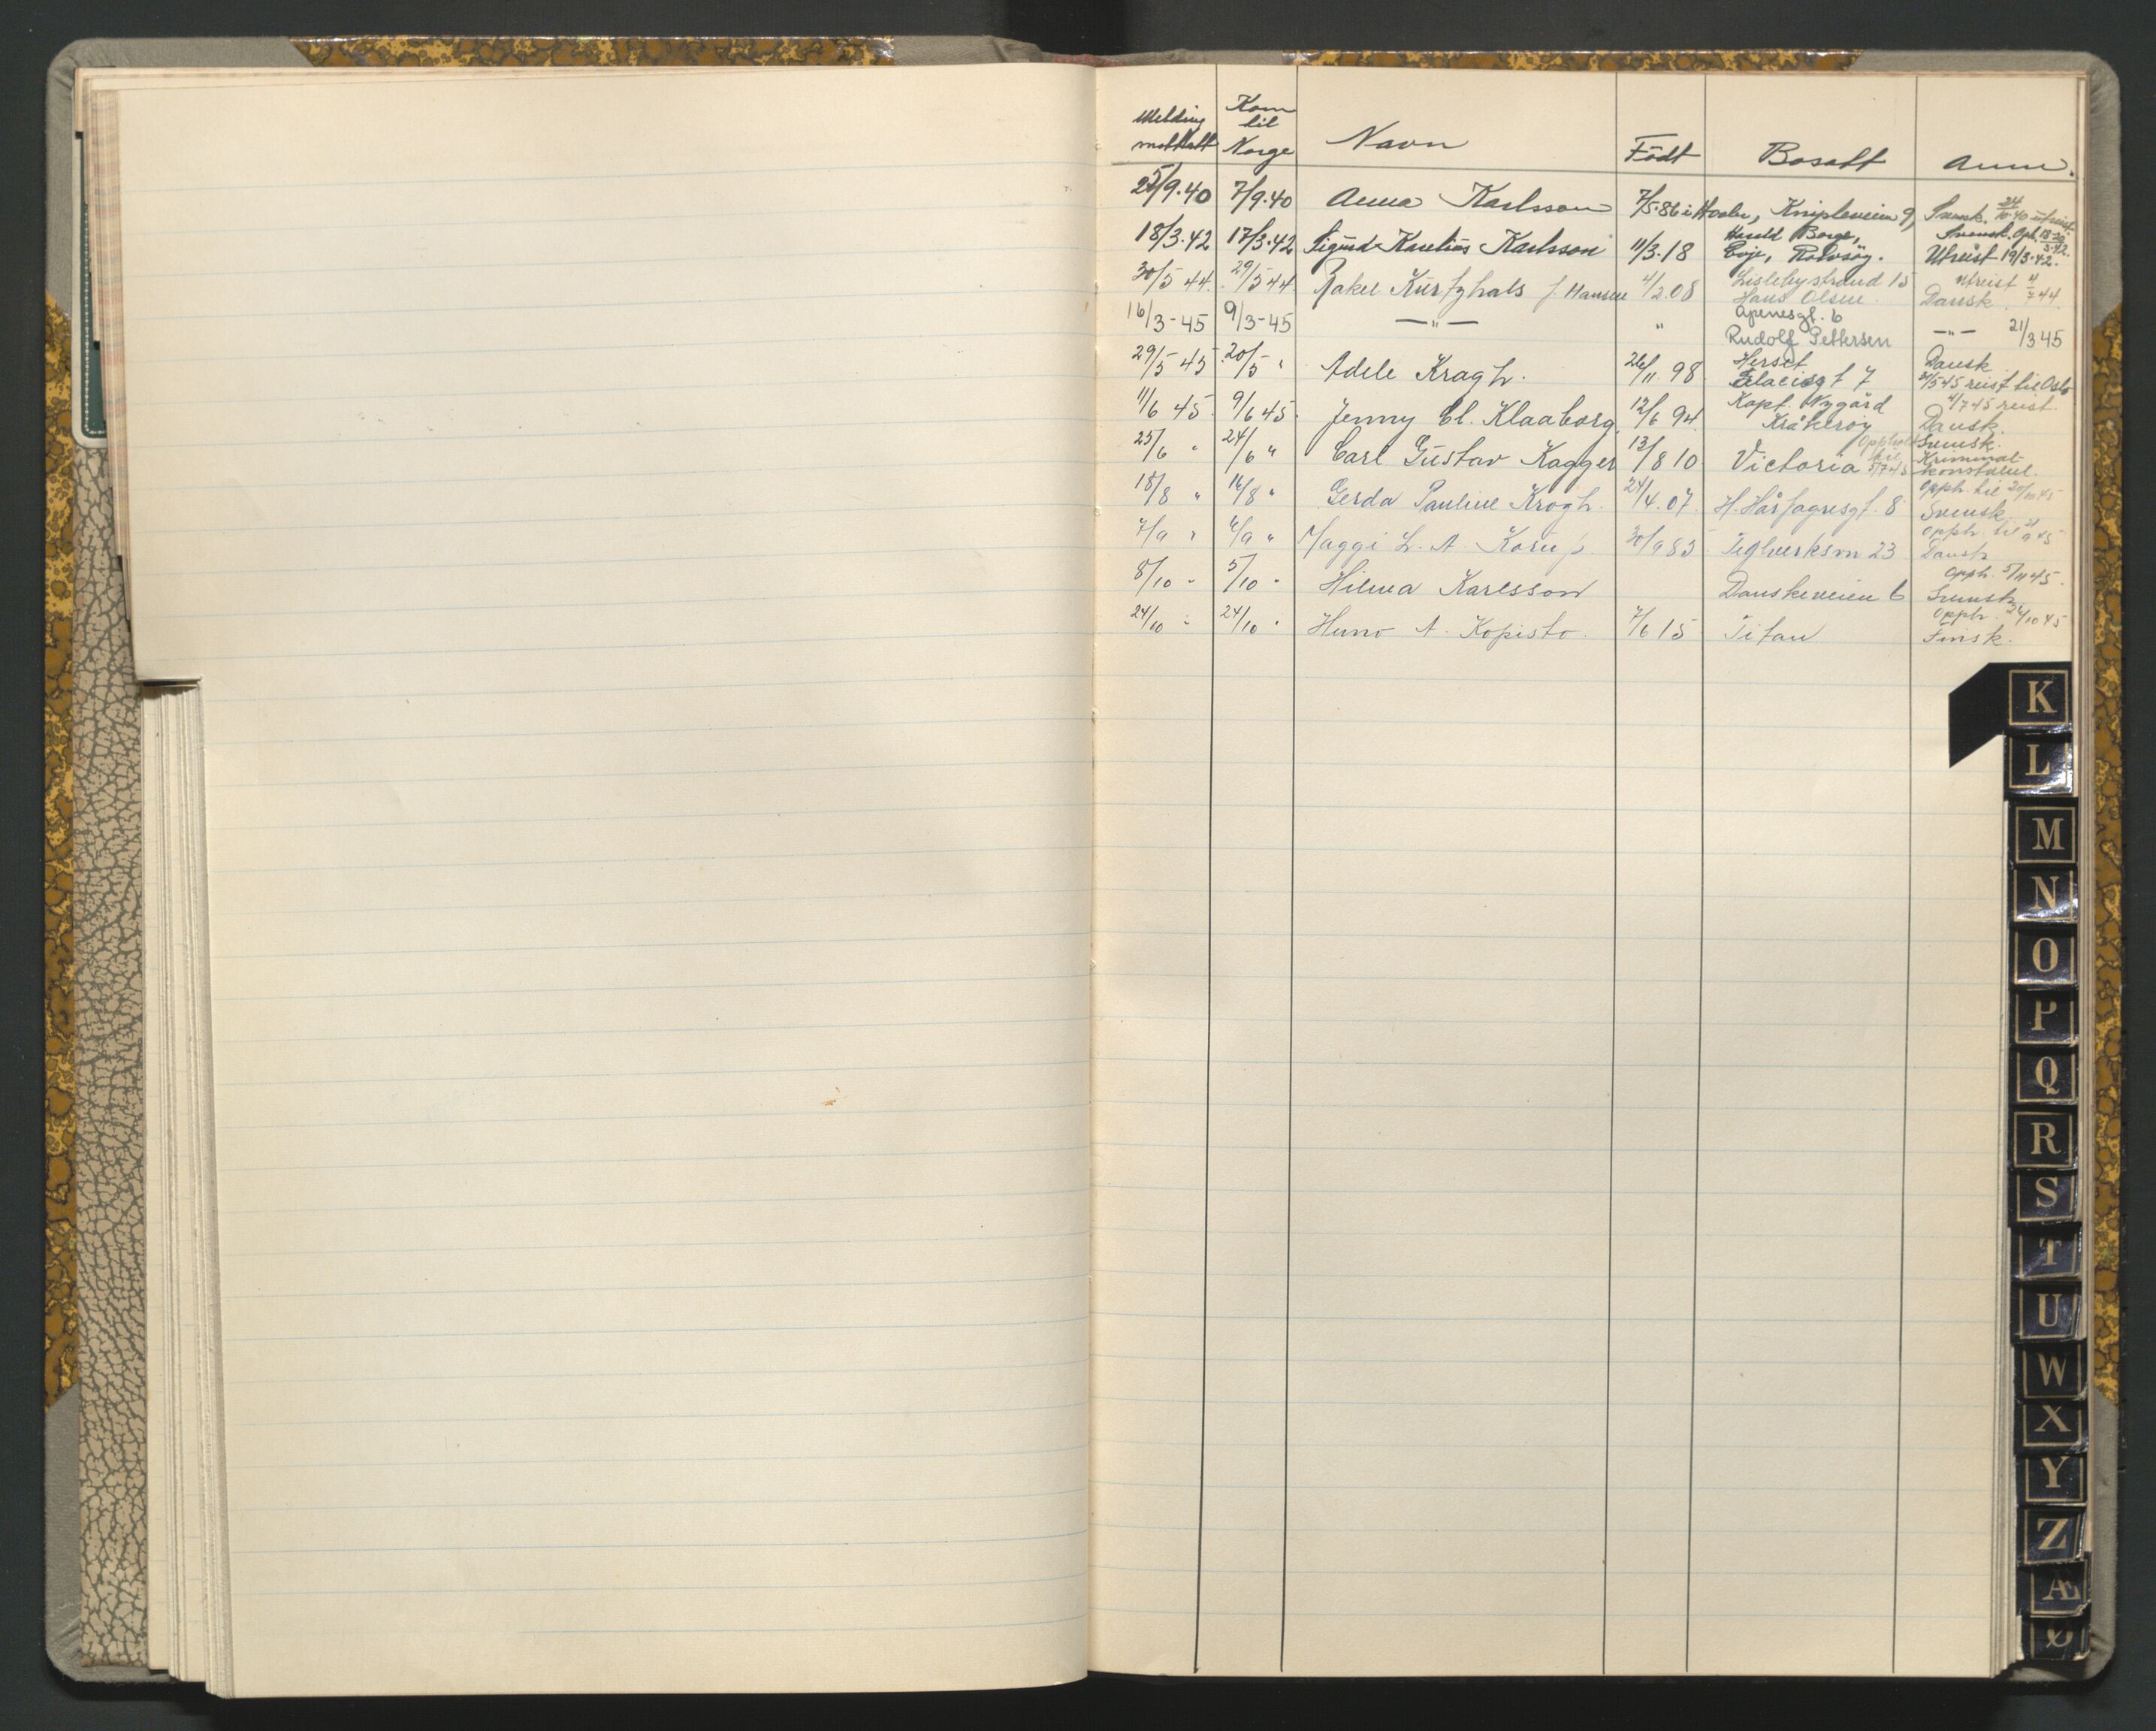 Melding mottatt Kom til Norge Navn Født Bosatt Anm.
25/9.40 7/9.40 Anna Karlsson 7/5.86 i Hvaler, Knipleveien 9, Svensk. 24/10.40 utreist.
18/3.42 17/3.42 Sigurd Karelius Karlsson 11/3.18 Harald Borge, Evje, Rolvsøy. Svensk. Oph. 18-20/3.42. Utreist 19/3.42.
30/5 44. 29/5 44 Rakel Kurtzhals f. Hansen 4/2.08 Lislebystrand 15 Hans Olsen. utreist 4/7 44. Dansk.
16/3-45 9/3-45 —"— " Apenesgt. 6 Rudolf Pettersen —"— 21/3 45
29/5 45 20/5 " Adele Kragh. 26/11.98 Herset Glacisgt 7 Dansk 31/5 45 reist til Oslo
11/6 45. 9/6 45. Jenny El. Klaaborg. 12/6 94. Kapt. Nygård Kråkerøy 4/7 45 reist. Dansk.
25/6 " 24/6 " Carl Gustav Kagger 13/8 10 Victoria Opphold til 5/7 45 Svensk. Kriminal-konstabel.
18/8 " 16/8 " Gerda Pauline Krogh. 24/4.07. H. Hårfagresgt. 8 Opph. til 20/10 45 Svensk
7/9 " 6/9 " Maggi L. A. Korup 30/9 85 Teglverksvn 23 Opph. til 9 45 Dansk
8/10 " 5/10 " Hilma Karlsson Danskeveien 6 Opph. 5/11 45. Svensk
24/10 " 24/10 " Hunø A. Kopisto. 7/6 15 Titan Opph. 26/10 45 Finsk.
K
L
M
N
O
P
Q
R
S
T
U
W
X
Y
Z
Æ
Ø